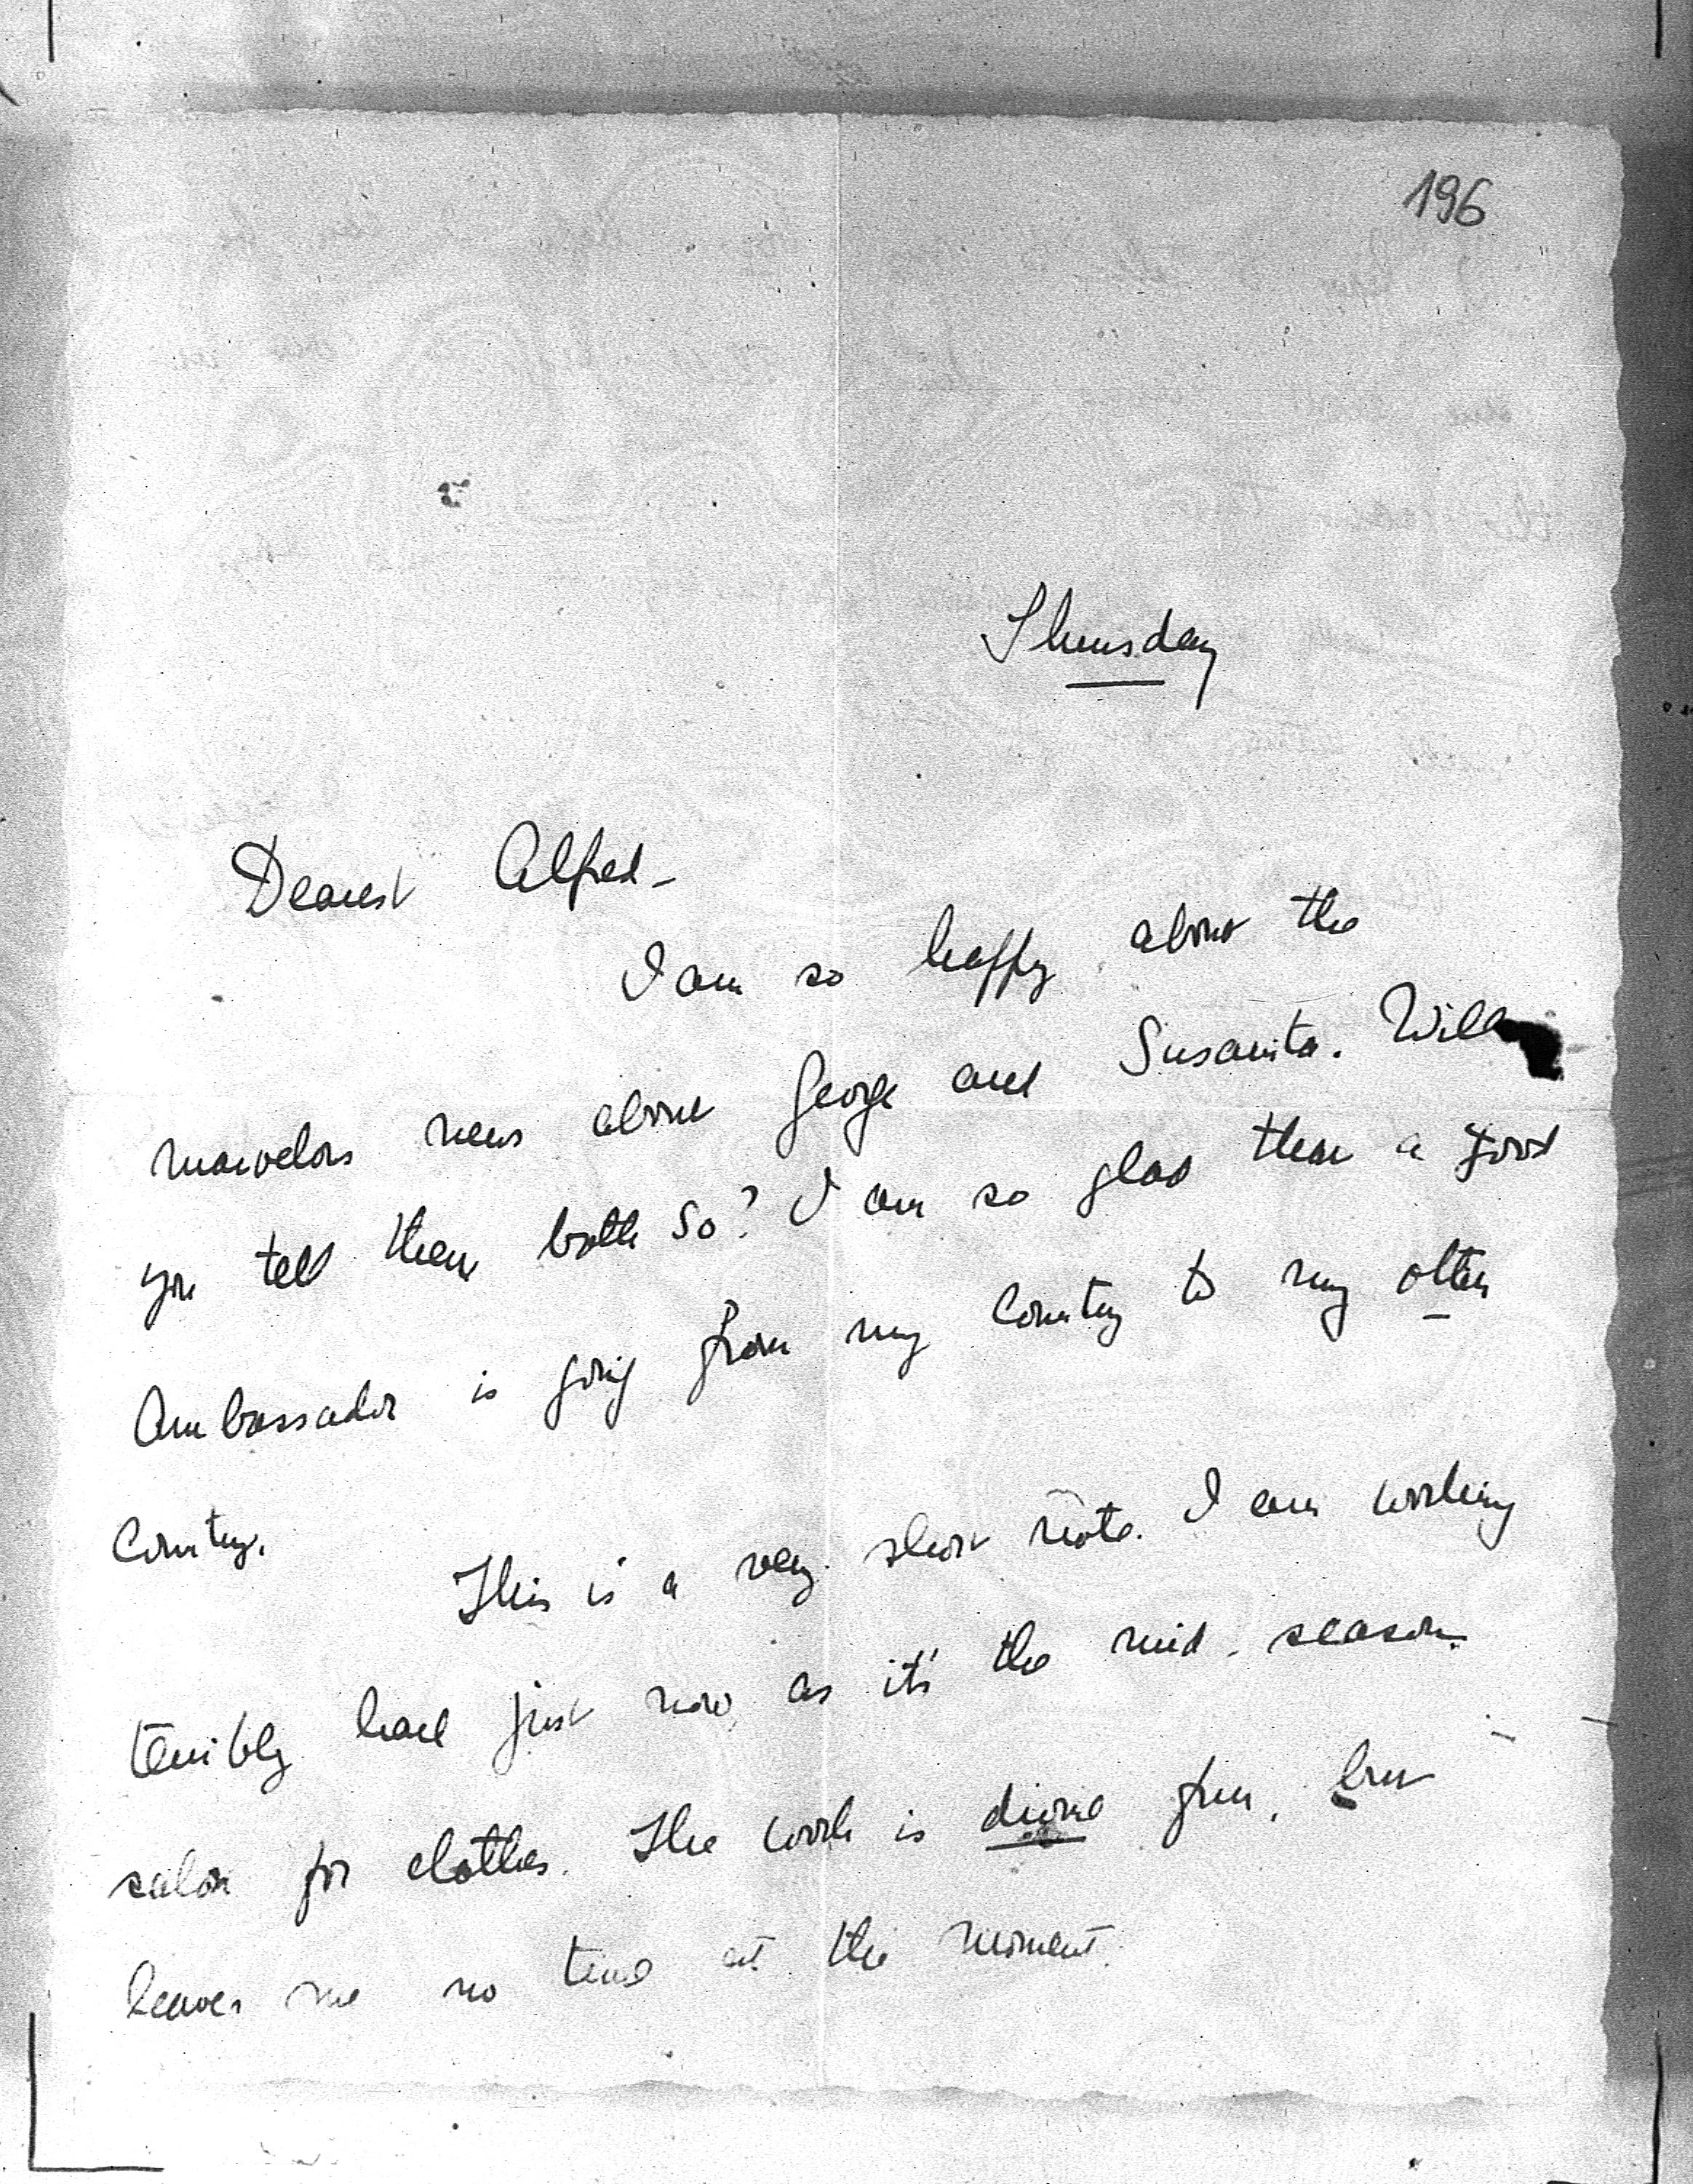 196
Thursday
Dearest Alfred -
I am so happy about the
marvelous news about George and Susanita. Will
you tell them both so? I am so glad that a good
Ambassador is going from my Country to my other
Country.
This is a very short note. I am working
terribly hard just now, as it's the mid-season
salon for clothes. The work is divine fun, but
leaves me no time at the moment.